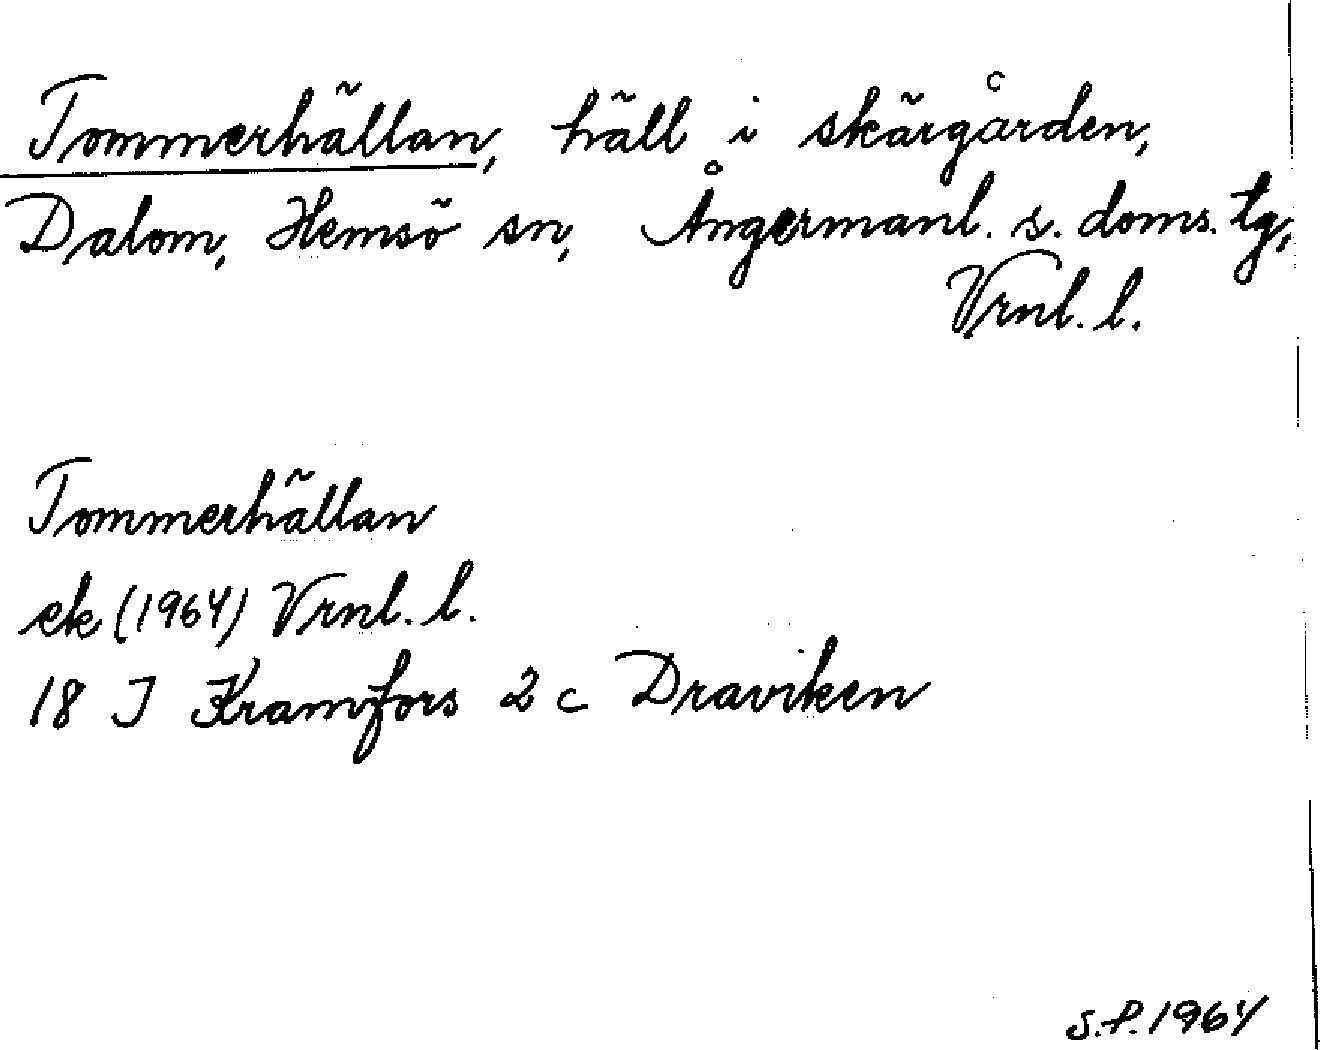 Tommerhällan, häll i skärgården,
Dalom, Hemsö sn, Ångermanl. s. doms. tg,
Vrnl. l.
Tommerhällan
ek (1964) Vrnl. l.
18 I Kramfors 2 c Draviken
S.P. 1964